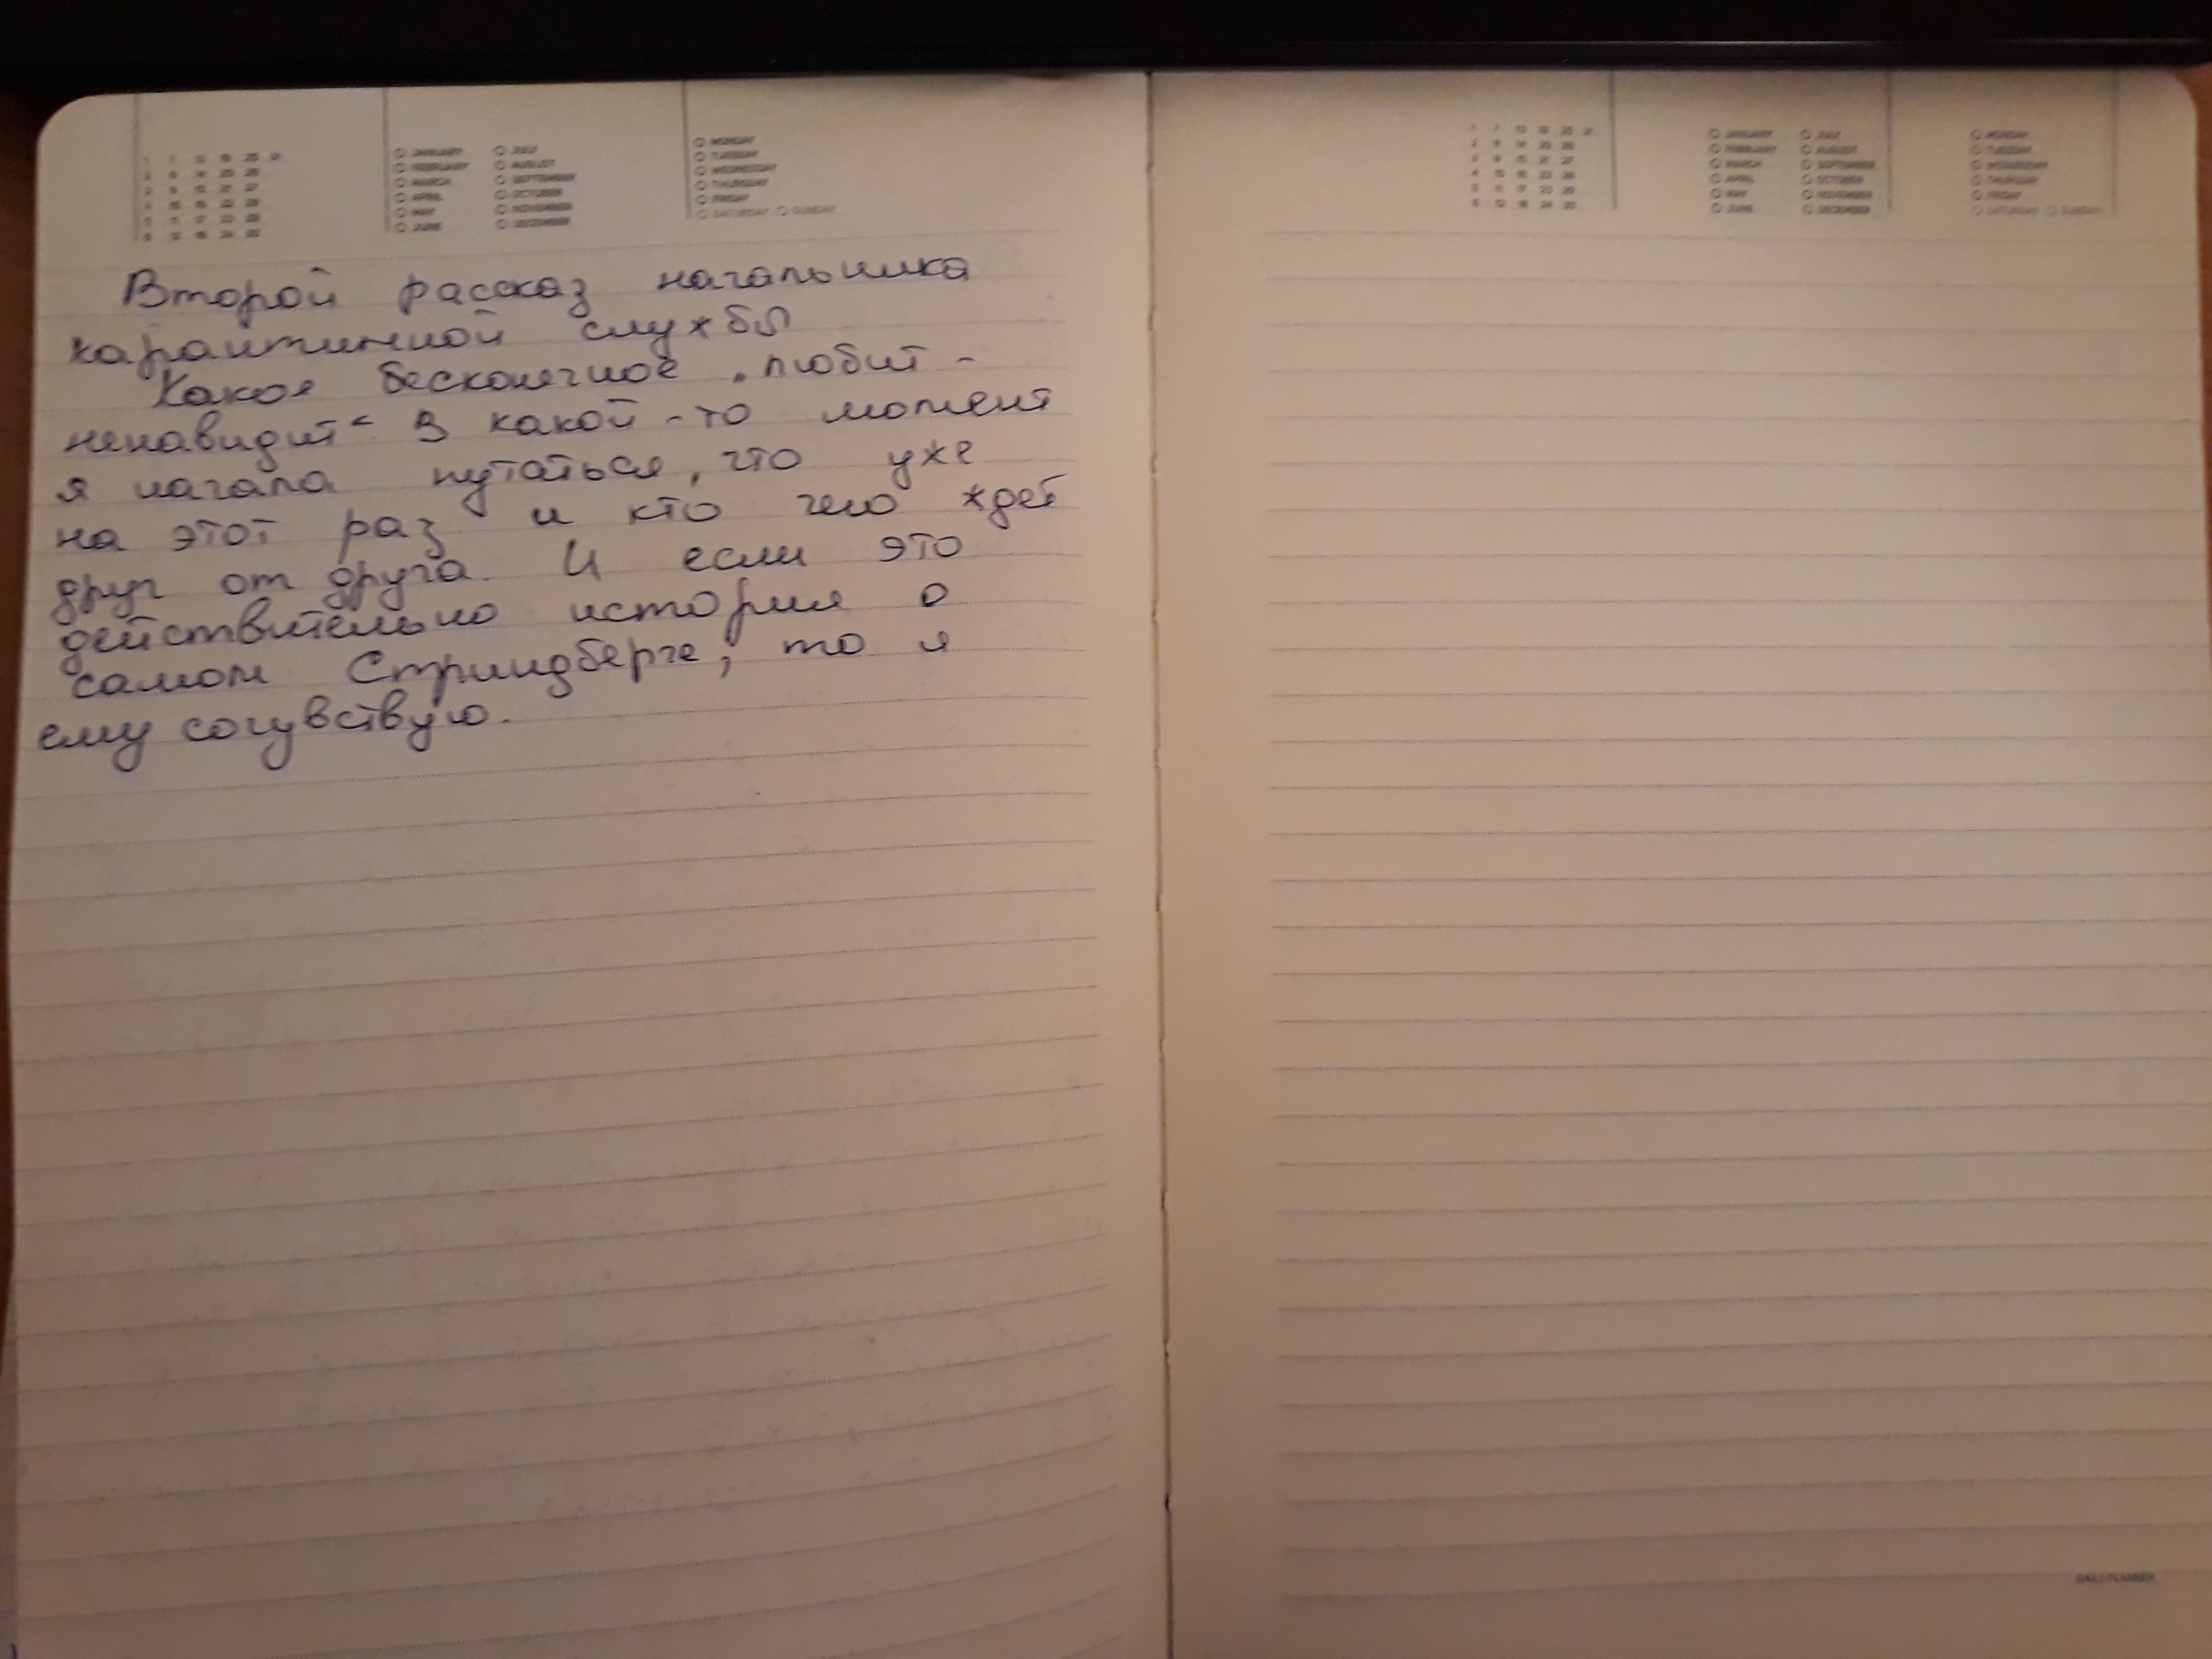 1 7 13 19 25 31
2 8 14 20 26
3 9 15 21 27
4 10 16 22 28
5 11 17 23 29
6 12 18 24 30
JANUARY JULY
FEBRUARY AUGUST
MARCH SEPTEMBER
APRIL OCTOBER
MAY NOVEMBER
JUNE DECEMBER
MONDAY
TUESDAY
WEDNESDAY
THURSDAY
FRIDAY
SATURDAY SUNDAY
Второй рассказ начальника
карантинной службы
Какое бесконечное „любит -
ненавидит“ В какой-то момент
я начала путаться, что уже
на этот раз и кто чего ждет
друг от друга. И если это
действительно история о
самом Стриндберге, то я
ему сочувствую.
1 7 13 19 25 31
2 8 14 20 26
3 9 15 21 27
4 10 16 22 28
5 11 17 23 29
6 12 18 24 30
JANUARY JULY
FEBRUARY AUGUST
MARCH SEPTEMBER
APRIL OCTOBER
MAY NOVEMBER
JUNE DECEMBER
MONDAY
TUESDAY
WEDNESDAY
THURSDAY
FRIDAY
SATURDAY SUNDAY
DAILY PLANNER